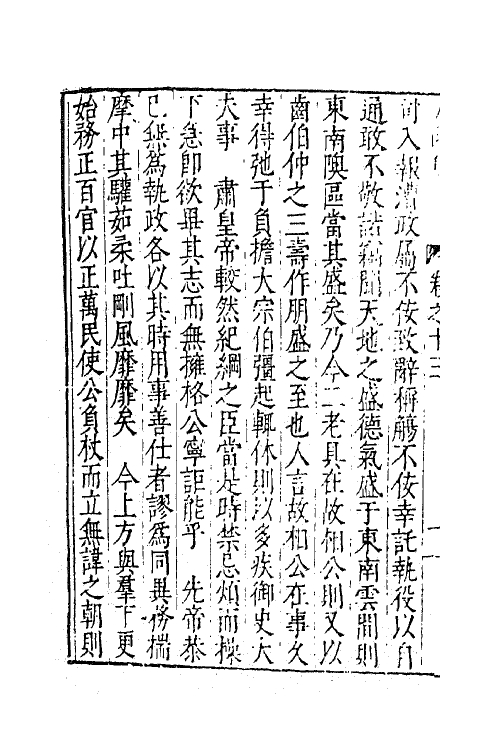 卷之十三
入報漕政屬不佞致辭稱觴不佞幸託執役以自
通敢不敬諾竊聞天地之盛德氣盛于東南雲間則
東南隩區當其盛矣乃今二老具在故相公則又以
齒伯仲之三壽作朋盛之至也人言故相公在事久
幸得弛于負擔大宗伯彊起輒休則以多疾御史大
夫事　肅皇帝較然紀綱之臣當是時禁忌煩而操
下急卽欲畢其志而無擁格公寧詎能乎　先帝恭
己無爲執政各以其時用事善仕者謬爲同異務揣
摩中其驩茹柔吐剛風靡靡矣　今上方與羣下更
始務正百官以正萬民使公負杖而立無諱之朝則